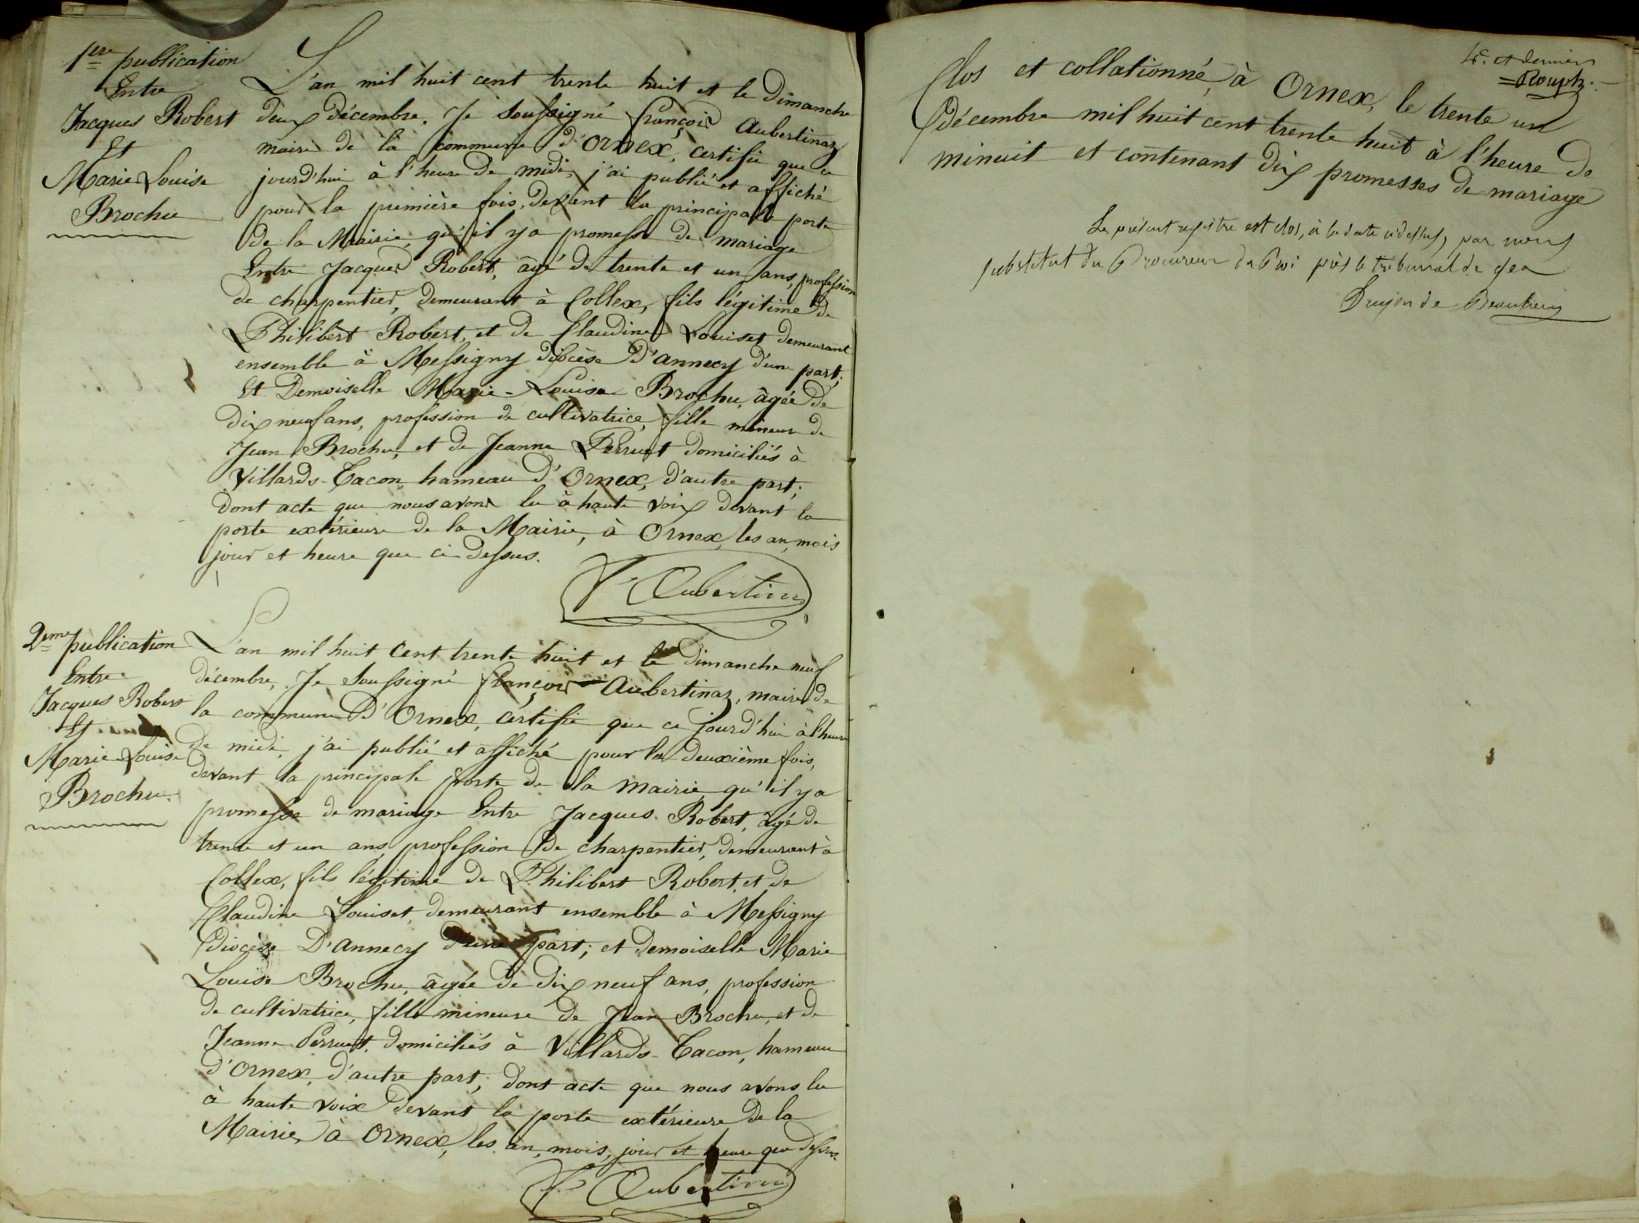 1ere publication
Entre
Jacques Robert
Et
Marie Louise
Brochu
L'an mil huit cent trente huit et le Dimanche
deux décembre. Je soussigné françois Aubertinaz
maire de la commune d'Ornex, certifie que ce
jourd'hui à l'heure de midi, j'ai publié et affiché
pour la première fois, devant la principale porte
de la Mairie, qu'il y a promesse de mariage
Entre Jacques Robert, âgé de trente et un ans, profession
de charpentier, demeurant à Collex, fils légitime de
Philibert Robert, et de Claudine Louiset demeurant
ensemble à Messigny diocèse D'annecy d'une part;
Et Demoiselle Marie-Louise Brochu, âgée de
dix neuf ans, profession de cultivatrice, fille mineur de
Jean Brochu, et de Jeanne Perruet domiciliés à
Villards-Tacon, hameau d'Ornex, d'autre part;
dont acte que nous avons lu à haute voix devant la
porte extérieure de la Mairie, à Ornex, les an, mois
jour et heure que ci-dessus.
2eme publication
Entre
Jacques Robert
Et
Marie Louise
Brochu
L'an mil huit cent trente huit et le Dimanche neuf
décembre, Je soussigné françois Aubertinaz, maire de
la commune D'Ornex, certifie que ce jourd'hui à l'heure
de midi, j'ai publié et affiché pour la deuxième fois,
devant la principale porte de la mairie, qu'il y a
promesse de mariage Entre Jacques Robert, âgé de
trente et un ans, profession de charpentier, demeurant à
Collex, fils légitime de Philibert Robert, et de
Claudine Louiset, demeurant ensemble à Messigny
diocèse D'annecy d'une part; et demoiselle Marie
Louise Brochu, âgée de dix neuf ans, profession
de cultivatrice, fille mineure de Jean Brochu, et de
Jeanne Perruet, domiciliés à Villards-Tacon, hameau
d'Ornex, d'autre part; dont acte que nous avons lu
à haute voix devant la porte extérieure de la
Mairie, à Ornex, les an, mois, jour et heure que dessus
et dernier
Clos et collationné, à Ornex, le trente un
décembre mil huit cent trente huit à l'heure de
minuit et contenant dix promesses de mariage
Le présent registre est clos, à la date ci dessus, par nous
substitut du Procureur du Roi près le tribunal de Gex